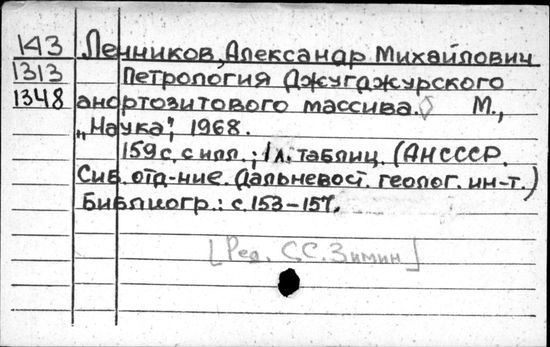 143 Ленников, Александр Михайлович
1313 Петрология Джугджурского
1348 анортозитового массива. М.,
„Наука", 1968.
159 с. с илл.; 1 л. таблиц. (АН СССР.
Сиб. отд-ние. Дальневост. геолог. ин-т.)
Библиогр.: с. 153-157.
[Ред. С.С. Зимин]